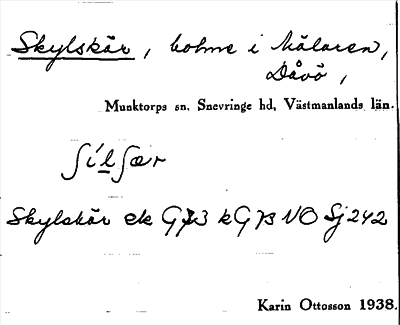 Skylskär, holme i Mälaren,
Dåvö,
Munktorps sn. Snevringe hd, Västmanlands län.
ʃíl̲ʃær
Skylskär ek G73 kG73 NO Sj242
Karin Ottosson 1938.